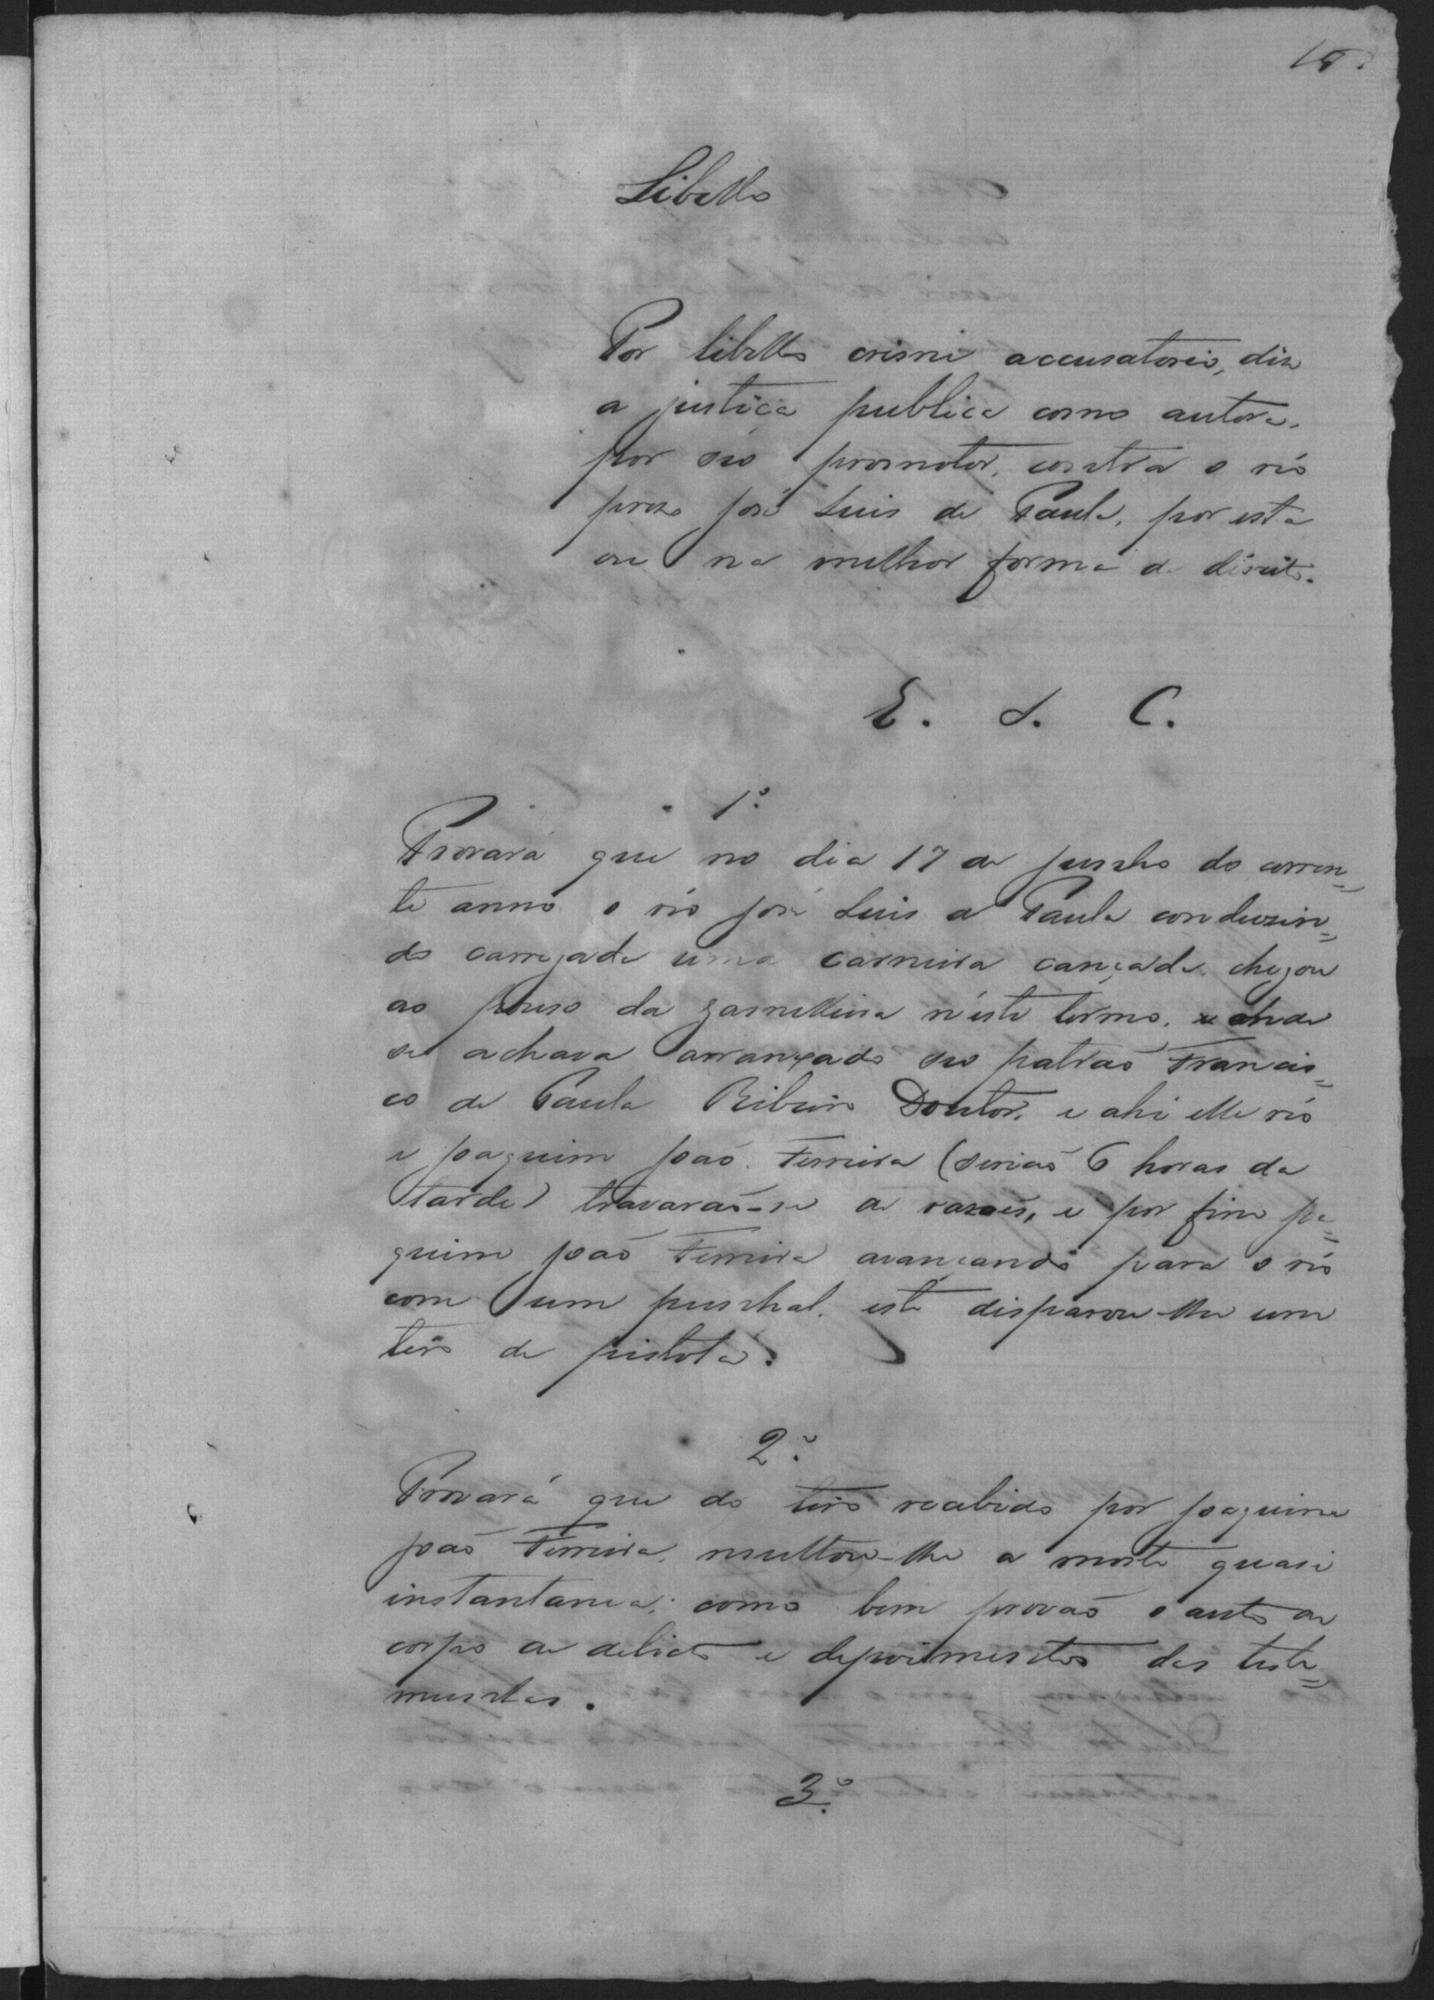 Libello
Por libello crime accusatorio, diz
a justiça publica como autora,
por seo promotor, contra o réo
prezo José Luis de Paula, por esta
ou na melhor forma de direito.
E. S. C.
1º
Provará que no dia 17 de junho do corren=
te anno o réo José Luis de Paula conduzin=
do carregada uma carneira cançada chegou
ao pouso da n'este termo, onde
se achava arranxado seo patrão Francis=
co de Paula Ribeiro Doutor, e ahi elle réo
e Joaquim João Ferreira (serião 6 horas da
tarde) travarão-se de razoẽs, e por fim Joa=
quim João Ferreira avançando para o réo
com um punhal, este disparou-lhe um
tiro de pistola.
2º
Provará que do tiro recebido por Joaquim
João Ferreira, resultou-lhe a morte quasi
instantanea; como bem provão o auto de
corpo de delicto e depoimentos das teste=
munhas.
3º